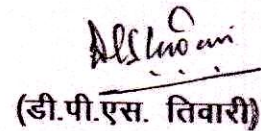 (डी.पी.एस. तिवारी)